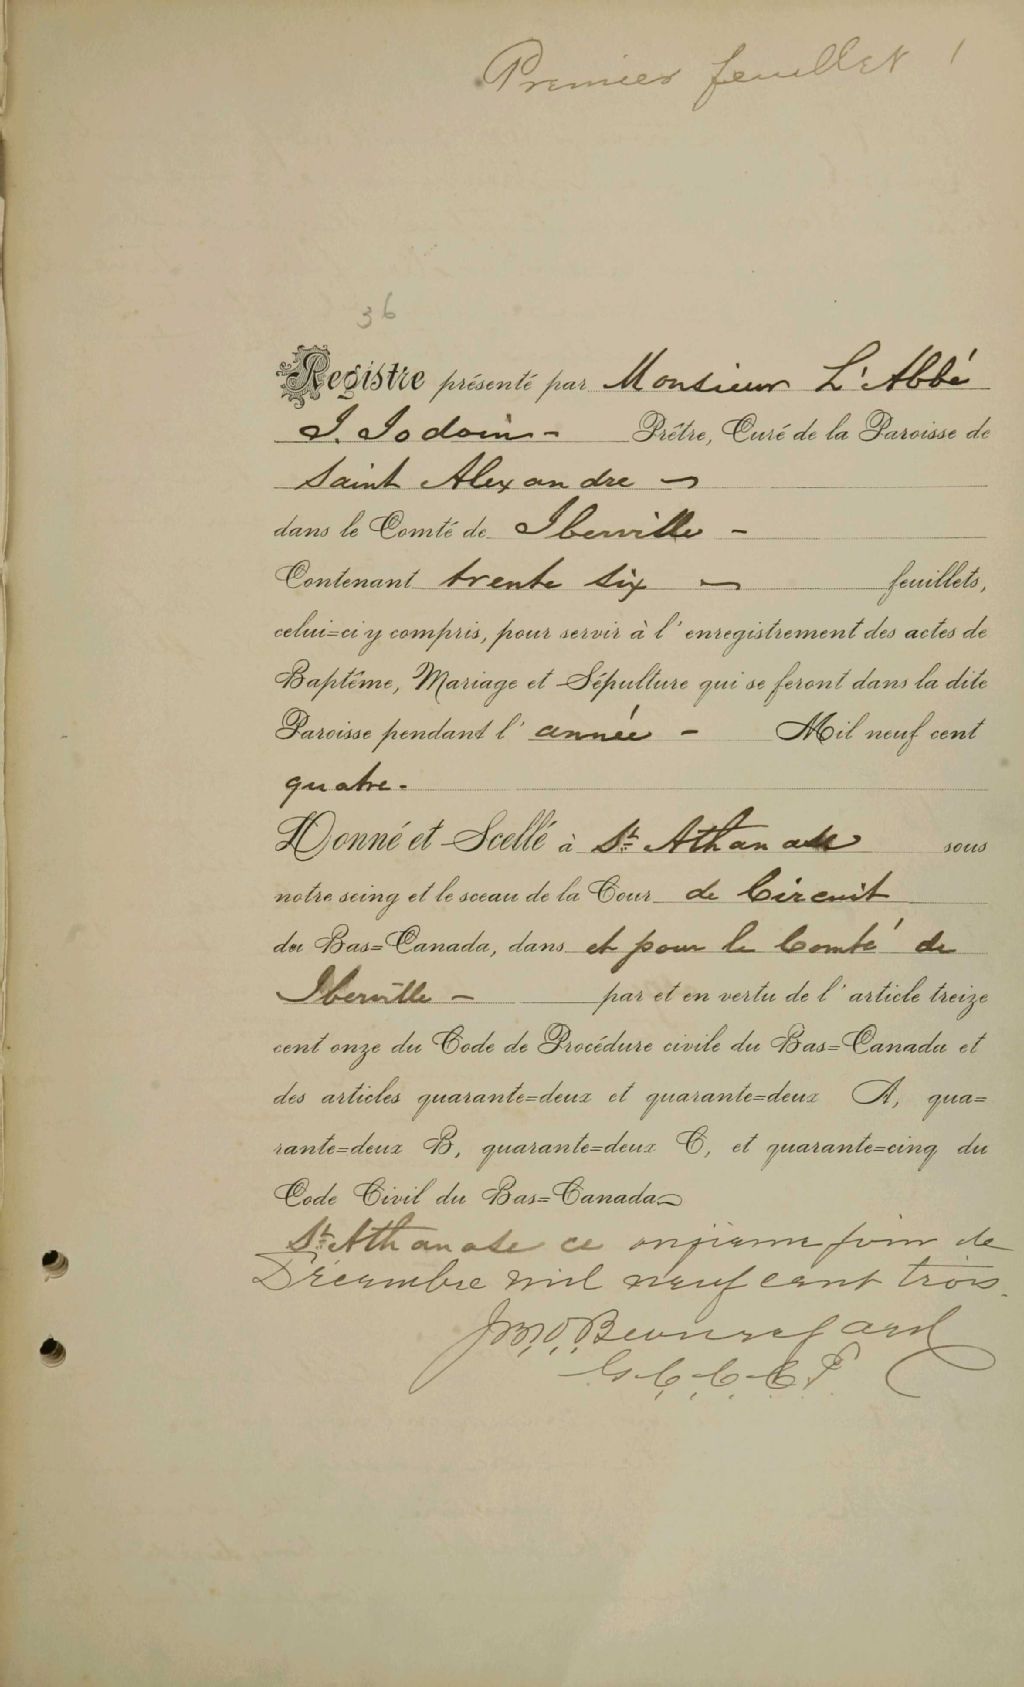 Premier feuillet 1
36
Registre présenté par Monsieur L'Abbé
J. Jodoin - Prêtre, Curé de la Paroisse de
Saint Alexandre -
dans le Comté de Iberville -
Contenant trente six - feuillets,
celui=ci y compris, pour servir à l'enregistrement des actes de
Baptême, Mariage et Sépulture qui se feront dans la dite
Paroisse pendant l'année - Mil neuf cent
quatre -
Donné et Scellé à St. Athanase sous
notre seing et le sceau de la Cour de Circuit
du Bas=Canada, dans et pour le Comté de
Iberville - par et en vertu de l'article treize
cent onze du Code de Procédure civile du Bas=Canada et
des articles quarante=deux et quarante=deux A, qua=
rante=deux B, quarante=deux C, et quarante=cinq du
Code Civil du Bas=Canada
St. Athanase ce onzieme jour de
Décembre mil neuf cent trois.
Beauregard
G.C.C.C.I.